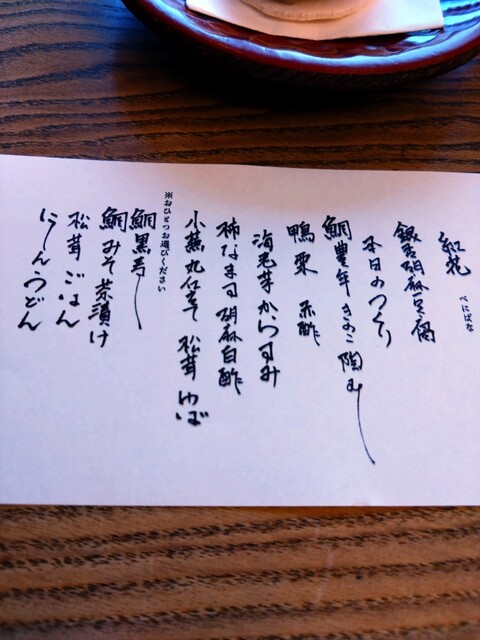 紅花
べにばな
銀杏胡麻豆腐
本日のつくり
鯛豊年きのこ陶むし
鴨栗 赤酢
海老芋からすみ
柿なます胡麻白酢
小蕪丸仕立て 松茸 ゆば
※おひとつお選びください
鯛黒寿し
鯛みそ茶漬け
松茸ごはん
にしんうどん